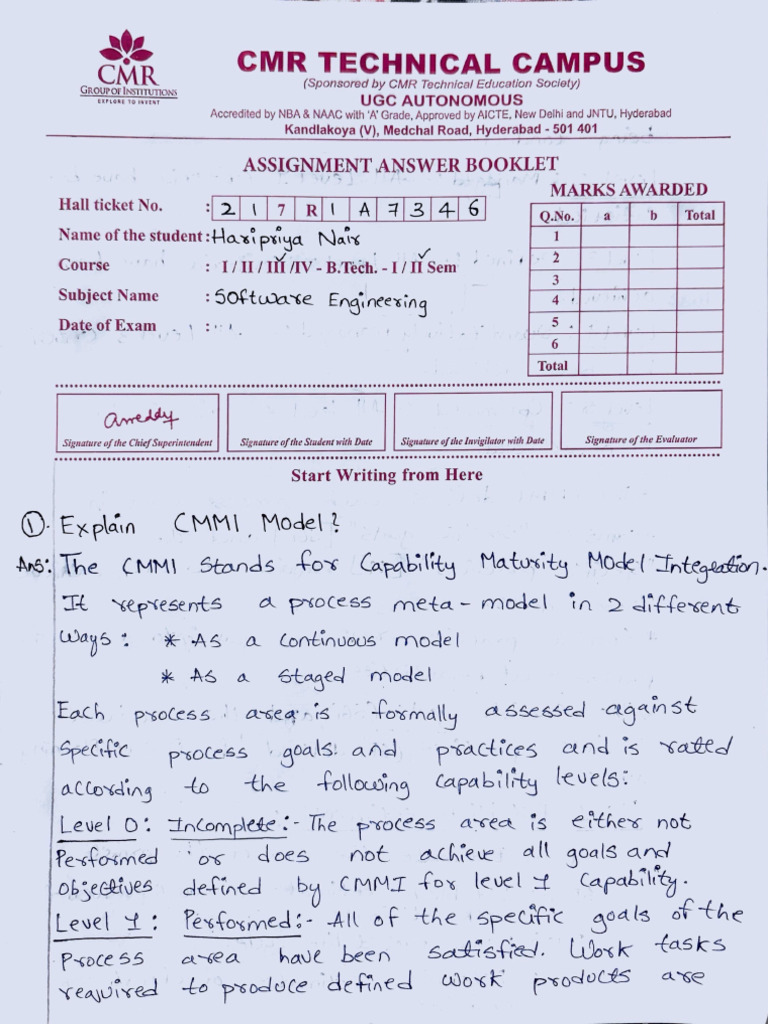 CMR
GROUP OF INSTITUTIONS
EXPLORE TO INVENT
CMR TECHNICAL CAMPUS
(Sponsored by CMR Technical Education Society)
UGC AUTONOMOUS
Accredited by NBA & NAAC with 'A' Grade, Approved by AICTE, New Delhi and JNTU, Hyderabad
Kandlakoya (V), Medchal Road, Hyderabad - 501 401
ASSIGNMENT ANSWER BOOKLET
Hall ticket No. : 2 1 7 R 1 A 7 3 4 6
Name of the student : Haripriya Nair
Course : I / II / III / IV - B.Tech. - I / II Sem
Subject Name : Software Engineering
Date of Exam :
MARKS AWARDED
Q.No. a b Total
1
2
3
4
5
6
Total
Arreddy
Signature of the Chief Superintendent
Signature of the Student with Date
Signature of the Invigilator with Date
Signature of the Evaluator
Start Writing from Here
①. Explain CMMI Model?
Ans: The CMMI stands for Capability Maturity Model Integeation.
It represents a process meta-model in 2 different
ways: * As a continuous model
* As a staged model
Each process area is formally assessed against
specific process goals and practices and is rated
according to the following capability levels:
Level 0: Incomplete:- The process area is either not
Performed or does not achieve all goals and
objectives defined by CMMI for level 1 capability.
Level 1: Performed:- All of the specific goals of the
process area have been satisfied. Work tasks
reaquired to produce defined work products are